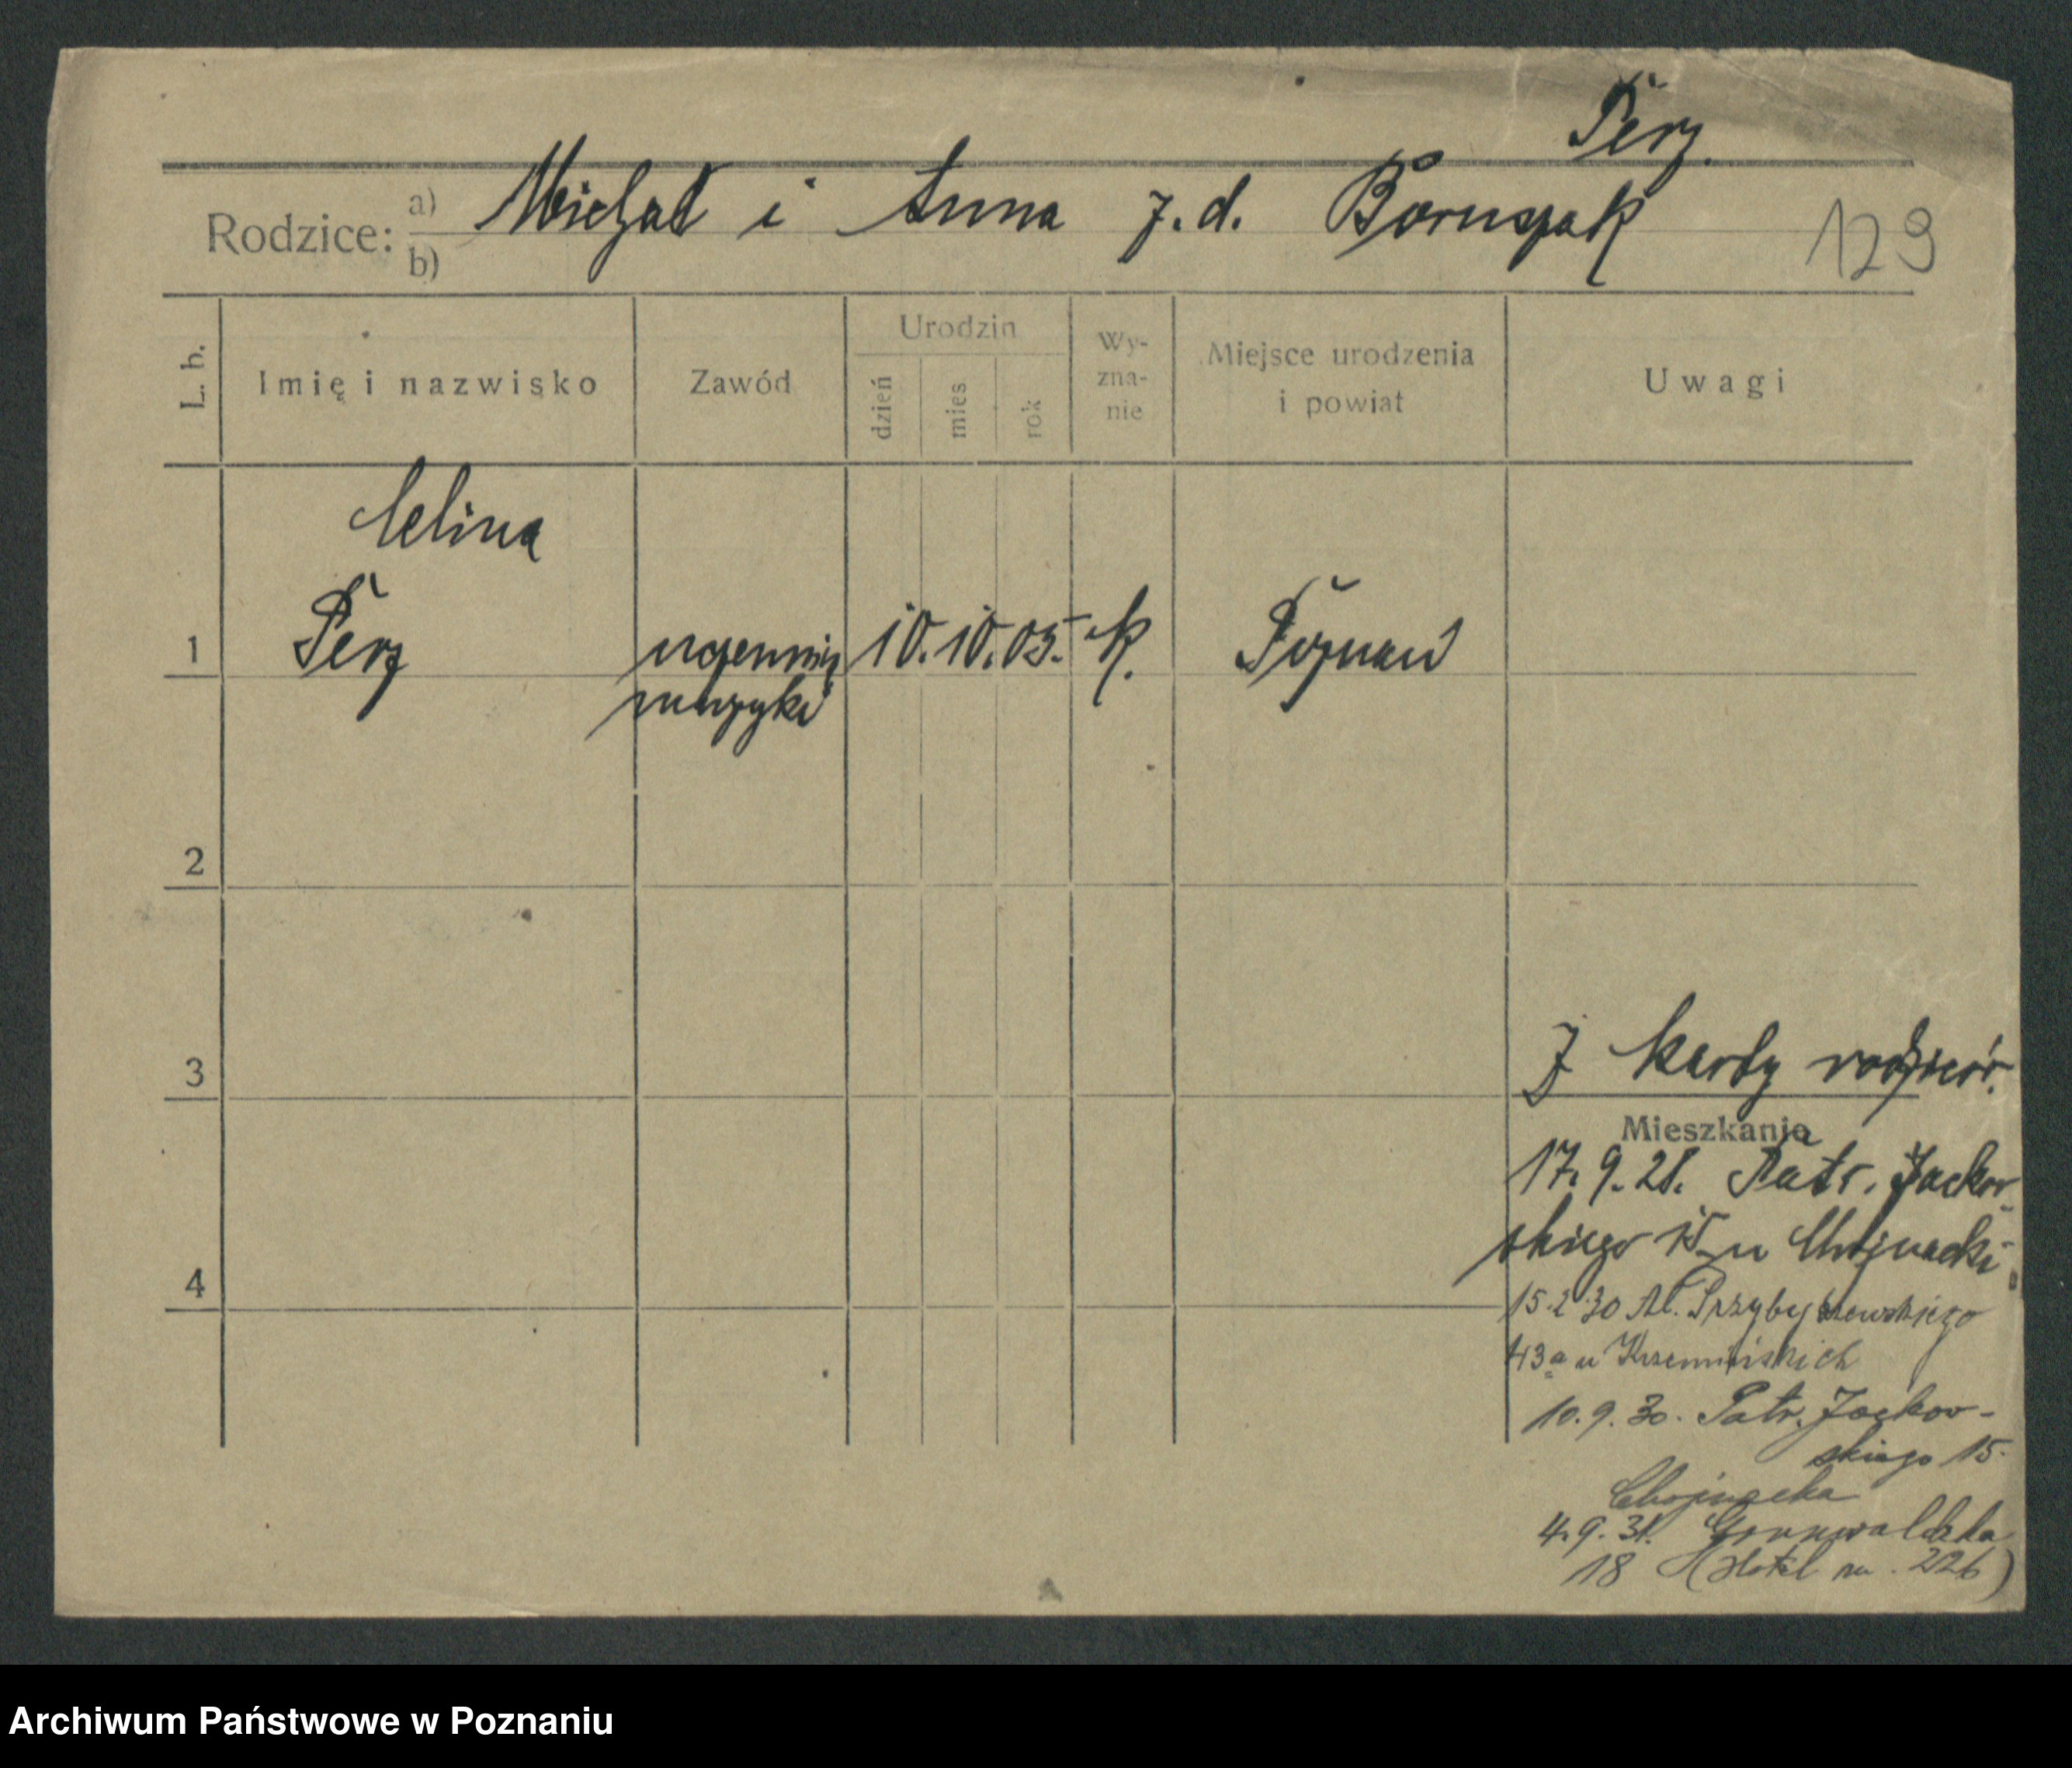 Perz.
Rodzice: a) Michał i Anna z. d. Boruszak
b)
129
L. b.
Imię i nazwisko
Zawód
Urodzin
dzień
mies
rok
Wy-
zna-
nie
Miejsce urodzenia
i powiat
Uwagi
Celina
1 Perz uczennica 10. 10. 05. k. Poznań
muzyki
2
3
Z karty rodziców.
Mieszkania
17. 9. 28. Patr. Jackow-
skiego 15 u Chojnacki
4
15.2.30 Al. Przybyszewskiego
43a u Krzemińskich
10. 9. 30. Patr. Jackow-
skiego 15.
Chojnacka
4. 9. 31. Grunwaldzka
18 (Hotel nr. 226)
Archiwum Państwowe w Poznaniu